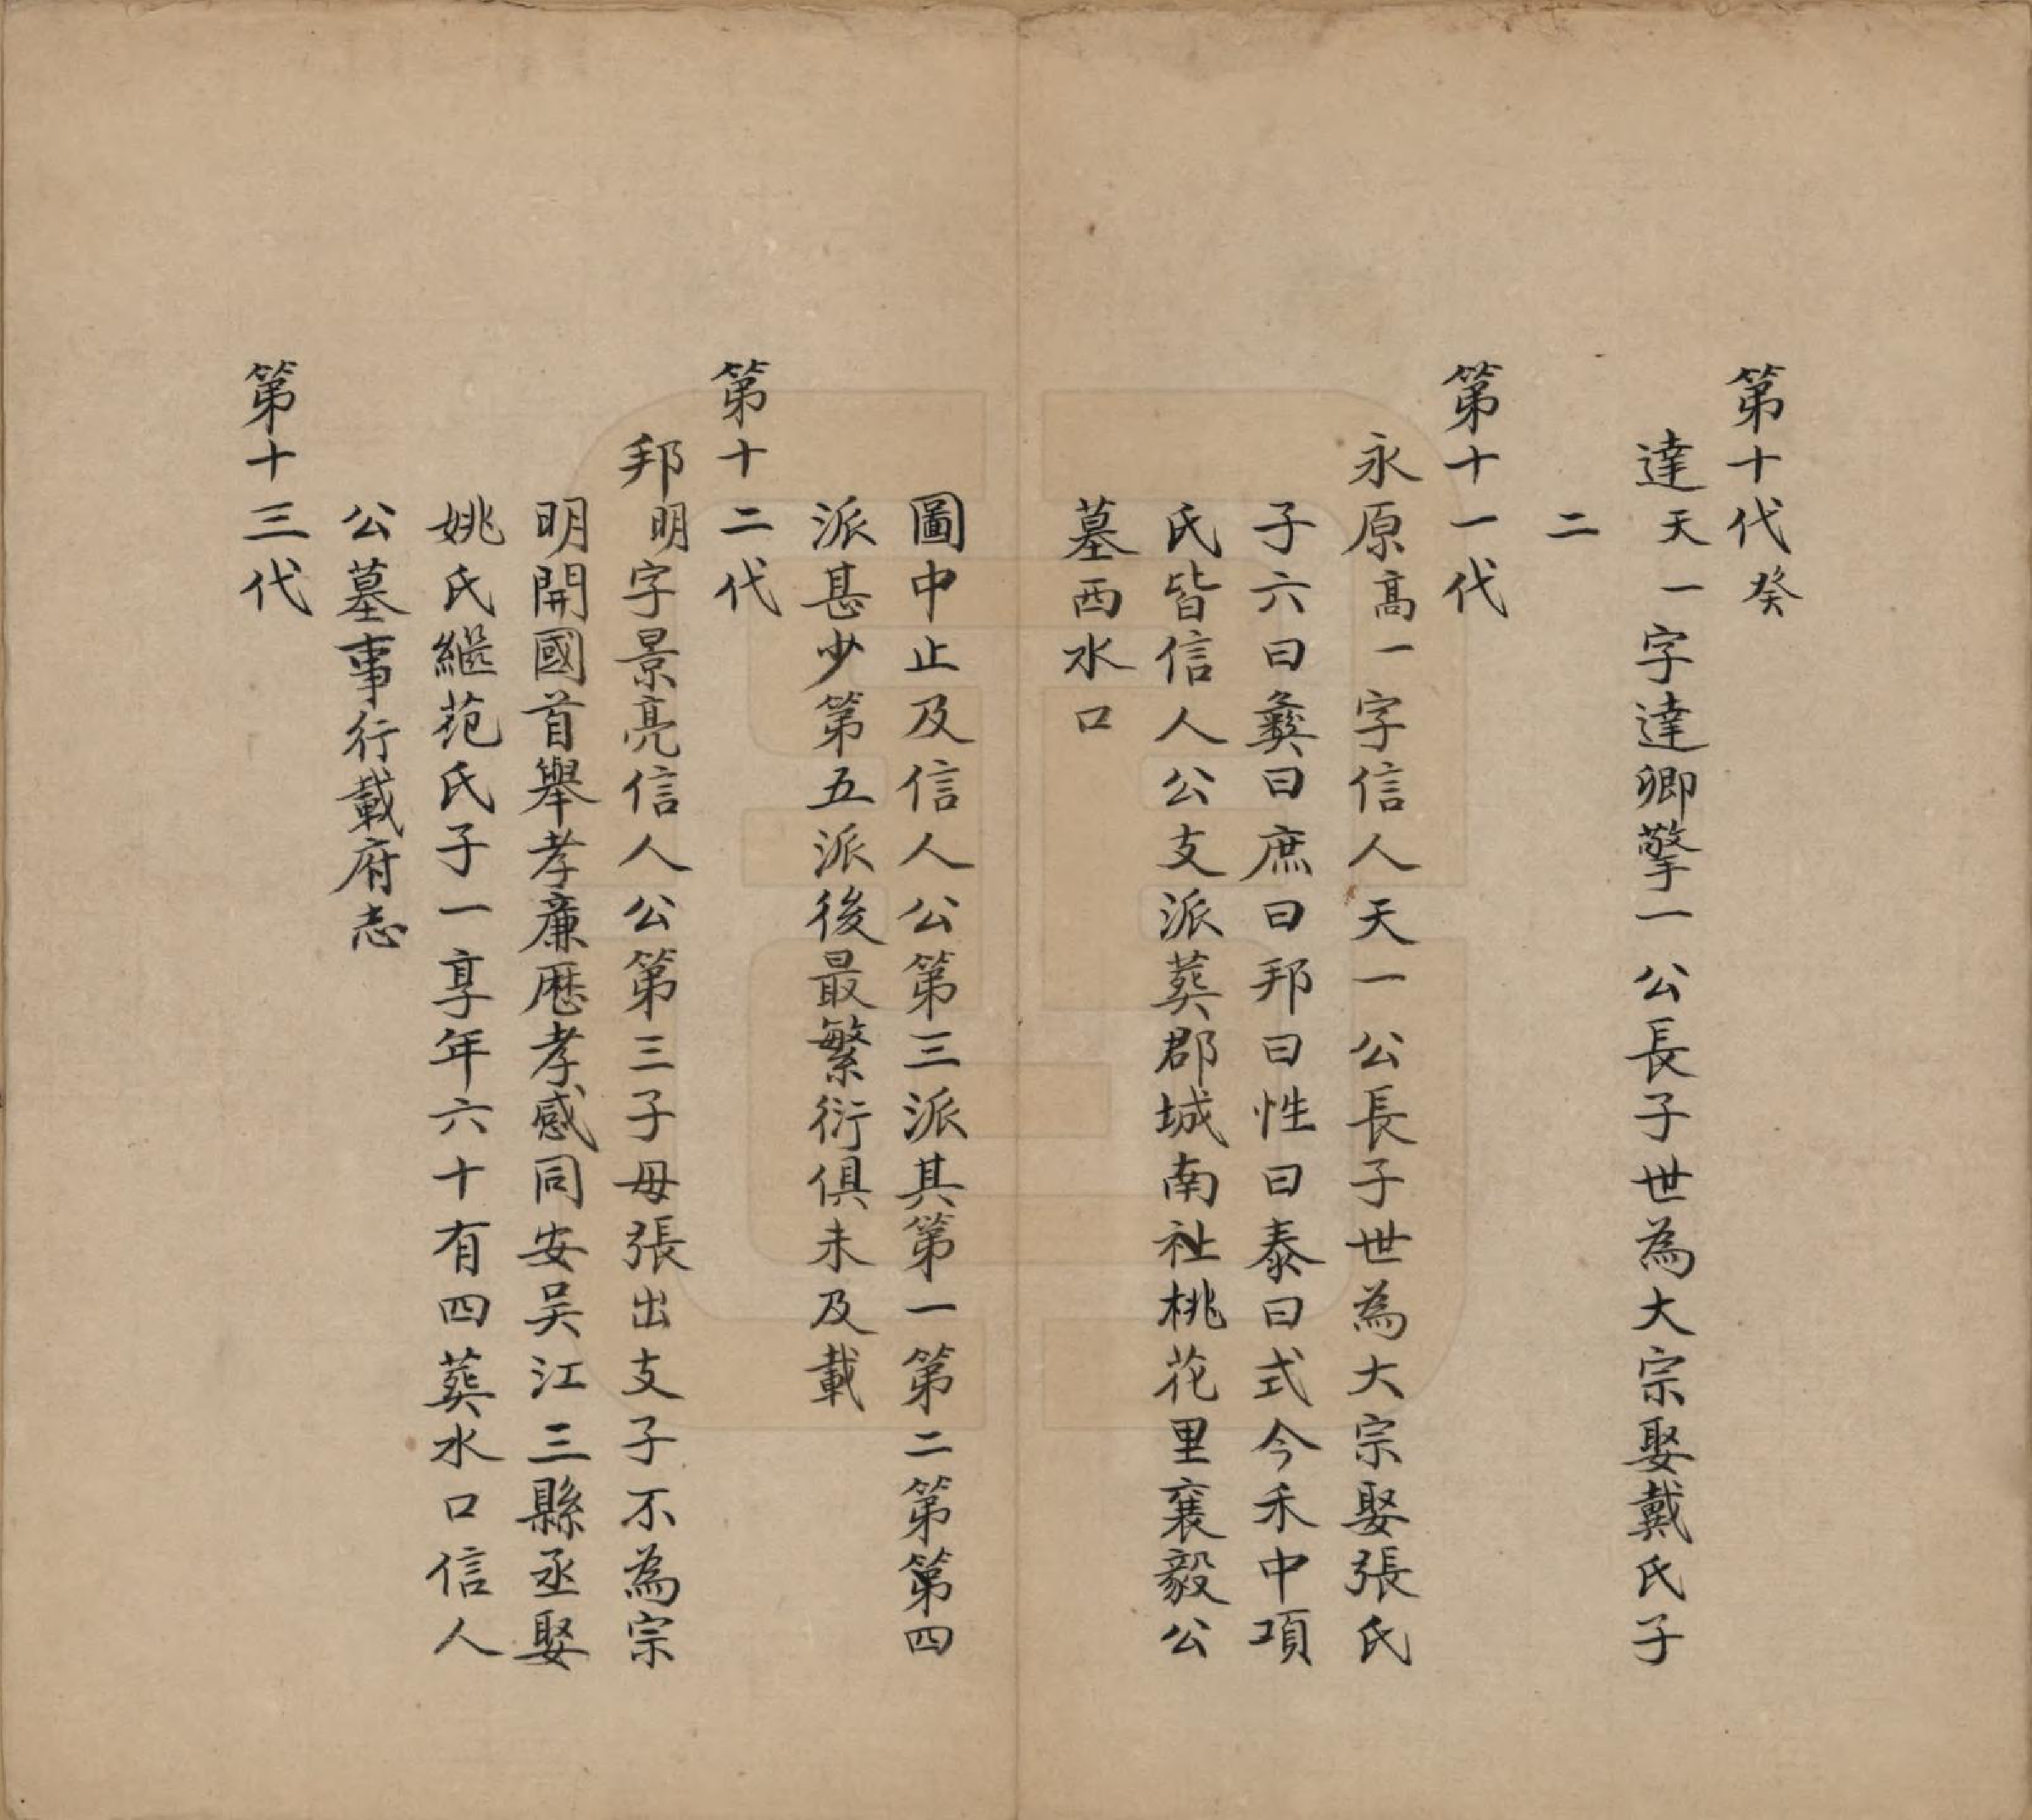 第十代癸
達天一字達卿擎一公長子世為大宗娶戴氏子
二
第十一代
永原高一字信人天一公長子世為大宗娶張氏
子六曰彝曰庶曰邦曰性曰泰曰式今禾中項
氏皆信人公支派葬郡城南社桃花里襄毅公
墓西水口
圖中止及信人公第三派其第一第二第第四
派甚少第五派後最繁衍俱未及載
第十二代
邦明字景亮信人公第三子母張出支子不為宗
明開國首舉孝廉歷孝感同安吴江三縣丞娶
姚氏繼范氏子一享年六十有四葬水口信人
公墓事行載府志
第十三代